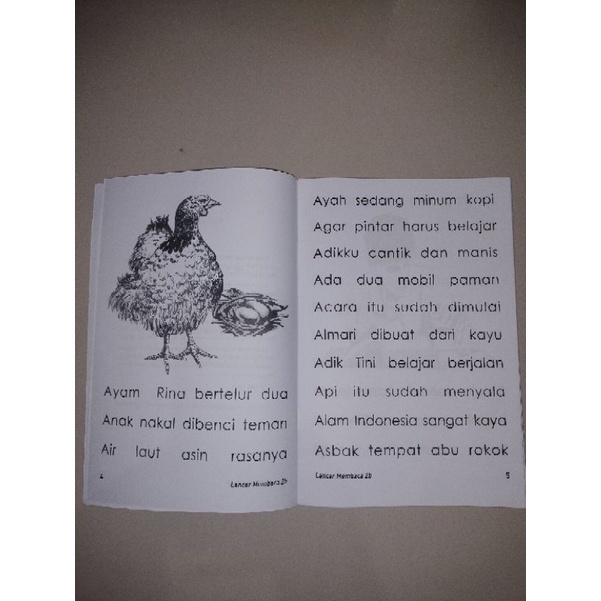 Ayam Rina bertelur dua
Anak nakal dibenci teman
Air laut asin rasanya
4
Lancar Membaca 2b
Ayah sedang minum kopi
Agar pintar harus belajar
Adikku cantik dan manis
Ada dua mobil paman
Acara itu sudah dimulai
Almari dibuat dari kayu
Adik Tini belajar berjalan
Api itu sudah menyala
Alam Indonesia sangat kaya
Asbak tempat abu rokok
Lancar Membaca 2b
5